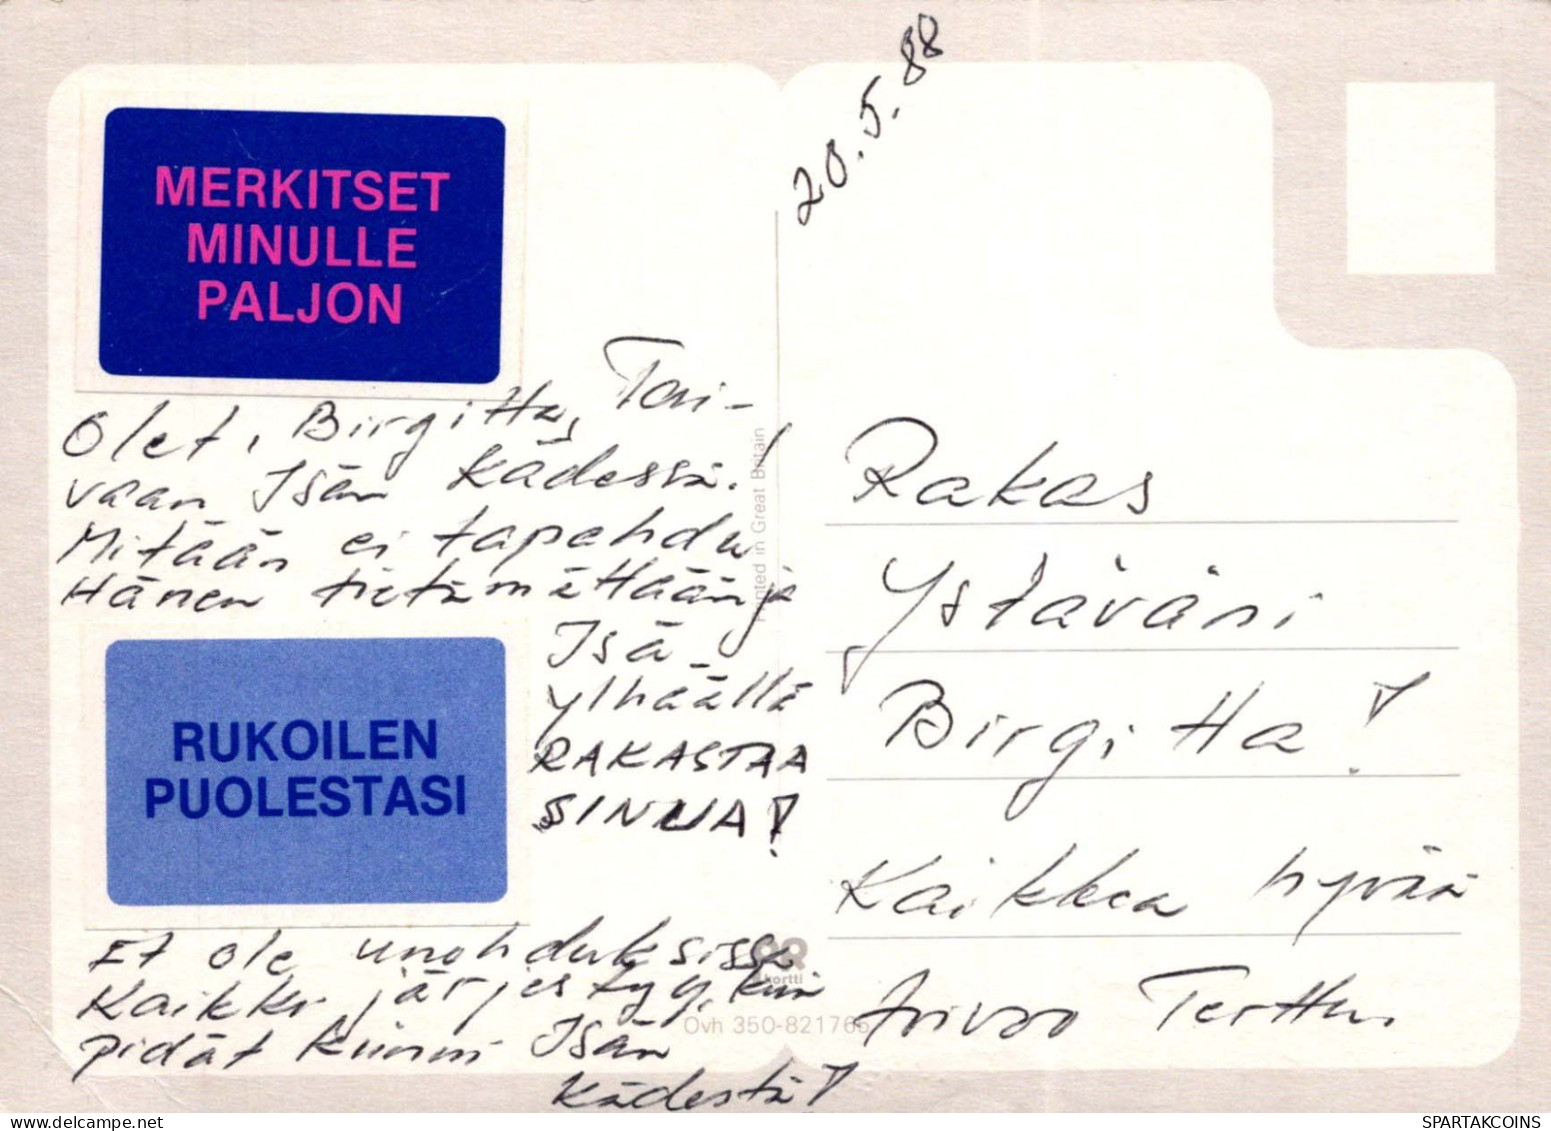 20.5.88
MERKITSET
MINULLE
PALJON
Olet, Birgitta, Tai-
vaan Isän kädessä!
Mitään ei tapahdu
Hänen tietämättään ja
Isä
ylhäällä
RAKASTAA
SINUA!
RUKOILEN
PUOLESTASI
Et ole unohduksissa
Kaikki järjestyy, kun
pidät kiinni Isän
kädestä!
Rakas
Ystäväni
Birgitta!
Kaikkea hyvää
toivoo Terttu
Printed in Great Britain
kortti
Ovh 350-821765
delcampe.net
SPARTAKCOINS